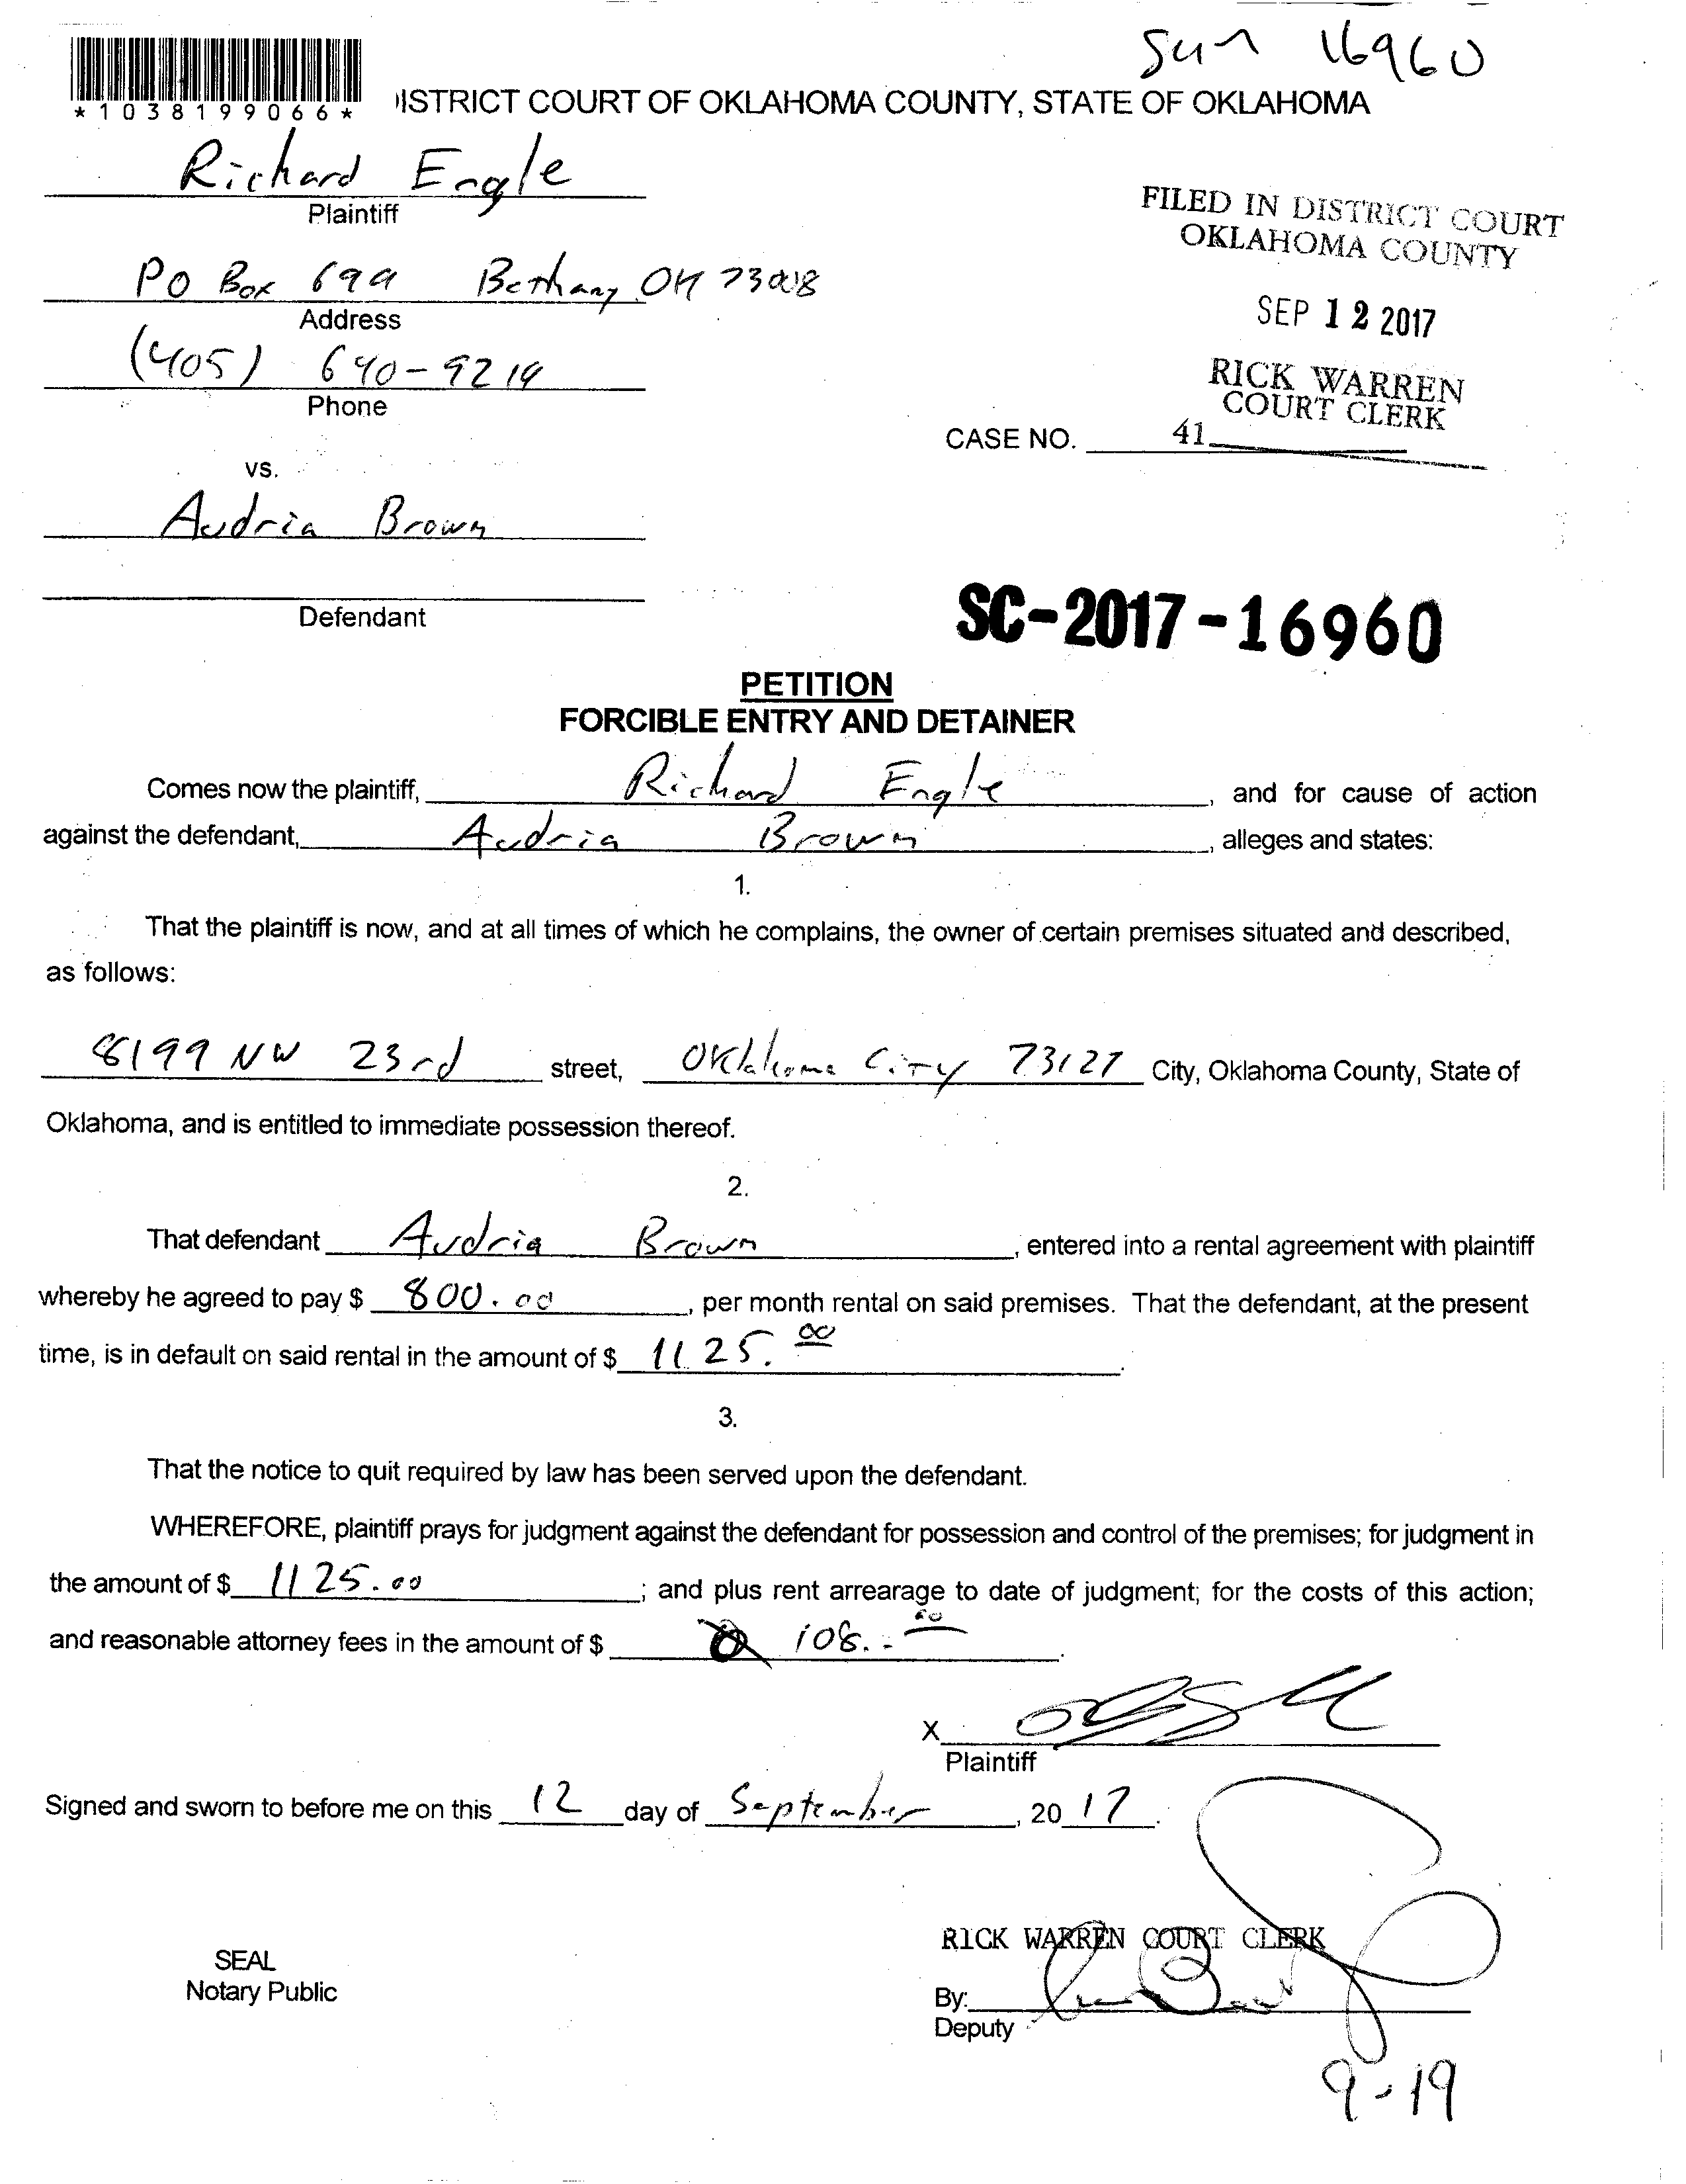 Sun 16960
*1038199066*
ISTRICT COURT OF OKLAHOMA COUNTY, STATE OF OKLAHOMA
Richard Engle
Plaintiff
FILED IN DISTRICT COURT
OKLAHOMA COUNTY
PO Box 699 Bethany OK 73008
Address
SEP 12 2017
(405) 640-9214
Phone
RICK WARREN
COURT CLERK
CASE NO. 41
vs.
Audria Brown
Defendant
SC-2017-16960
PETITION
FORCIBLE ENTRY AND DETAINER
Comes now the plaintiff, Richard Engle, and for cause of action
against the defendant, Audria Brown, alleges and states:
1.
That the plaintiff is now, and at all times of which he complains, the owner of certain premises situated and described,
as follows:
8199 NW 23rd street, Oklahoma City 73127 City, Oklahoma County, State of
Oklahoma, and is entitled to immediate possession thereof.
2.
That defendant Audria Brown, entered into a rental agreement with plaintiff
whereby he agreed to pay $ 800.00, per month rental on said premises. That the defendant, at the present
time, is in default on said rental in the amount of $ 1125.00.
3.
That the notice to quit required by law has been served upon the defendant.
WHEREFORE, plaintiff prays for judgment against the defendant for possession and control of the premises; for judgment in
the amount of $ 1125.00; and plus rent arrearage to date of judgment; for the costs of this action;
and reasonable attorney fees in the amount of $ 108.00.
X
Plaintiff
Signed and sworn to before me on this 12 day of September, 2017.
RICK WARREN COURT CLERK
SEAL
Notary Public
By:
Deputy
9-19